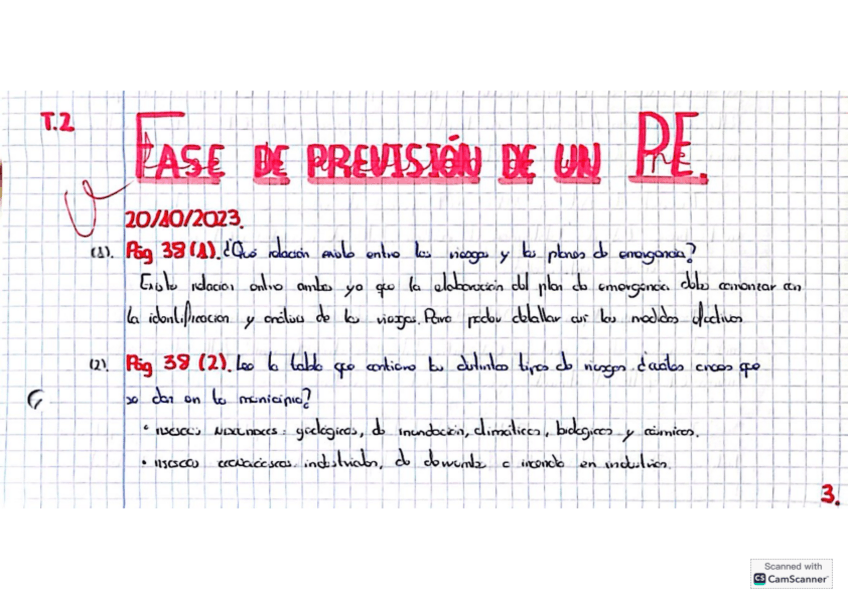 T.2
FASE DE PREVISIÓN DE UN PE.
20/10/2023.
(1). Pág 38 (1). ¿Qué relación existe entre los riesgos y los planes de emergencia?
Existe relación entre ambas ya que la elaboración del plan de emergencia debe comenzar con
la identificación y análisis de los riesgos. Para poder detallar así las medidas efectivas
(2). Pág 38 (2). Lee la tabla que contiene los distintos tipos de riesgos. ¿cuáles crees que
se dan en tu municipio?
• geológicos, de inundación, climáticos, biológicos y cósmicos.
• industriales, de derrumbe e incendio en industrias.
3.
Scanned with
CS CamScanner